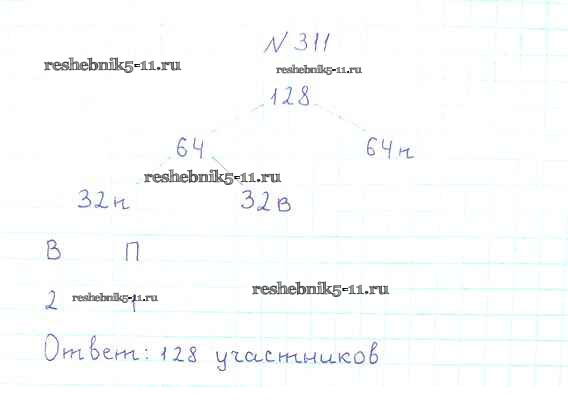 N 311
reshebnik5-11.ru
reshebnik5-11.ru
128
64 64н
reshebnik5-11.ru
32н 32в
В П
2 reshebnik5-11.ru 1
reshebnik5-11.ru
Ответ: 128 участников